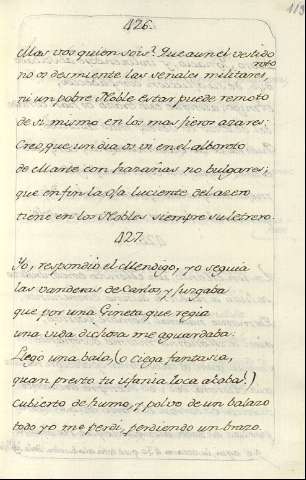 113
426.
Mas vos quien sois? Que aun el vestido roto
no os desmiente las señales militares,
ni un pobre Noble estar puede remoto
de si mismo en los mas fieros azares:
Creo, que un dia os vi en el alboroto
de Marte con hazañas no bulgares;
que en fin la oja luciente del azero
tiene en los Nobles siempre su letrero.
427.
Yo, respondiò el Mendigo, yo seguia
las vanderas de Carlos, y juzgaba
que por una Gineta que regia
una vida dichosa me aguardaba.
Llegó una bala, (o ciega fantasia,
quan presto tu ufania loca acaba!)
cubierto de humo, y polvo de un balazo
todo yo me perdi, perdiendo un brazo.